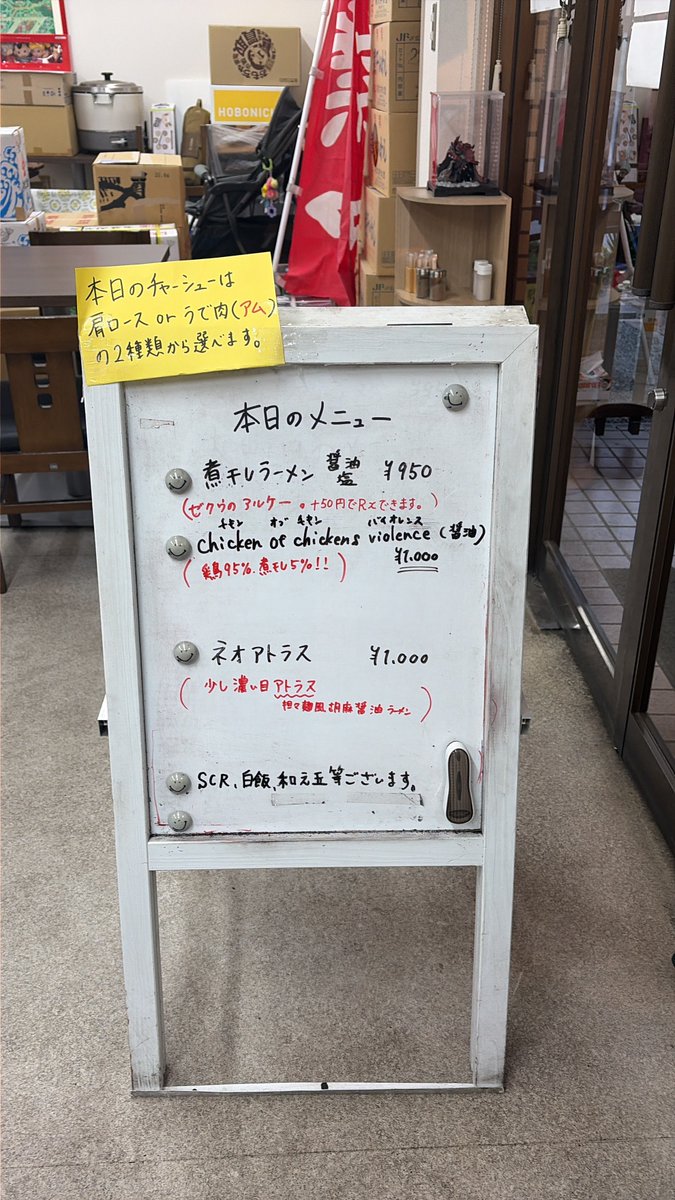 HOBONICHI
本日のチャーシューは
肩ロース or うで肉(アム)
の2種類から選べます。
本日のメニュー
煮干しラーメン 醤油 塩 ¥950
(ゼクウのアルケー。+50円でRxできます。)
チキン オブ チキン バイオレンス
chicken of chickens violence (醤油)
(鶏95%.煮干し5%!!) ¥1.000
ネオアトラス ¥1.000
(少し濃い目アトラス
担々麺風胡麻醤油ラーメン)
SCR、白飯、和え玉等ございます。